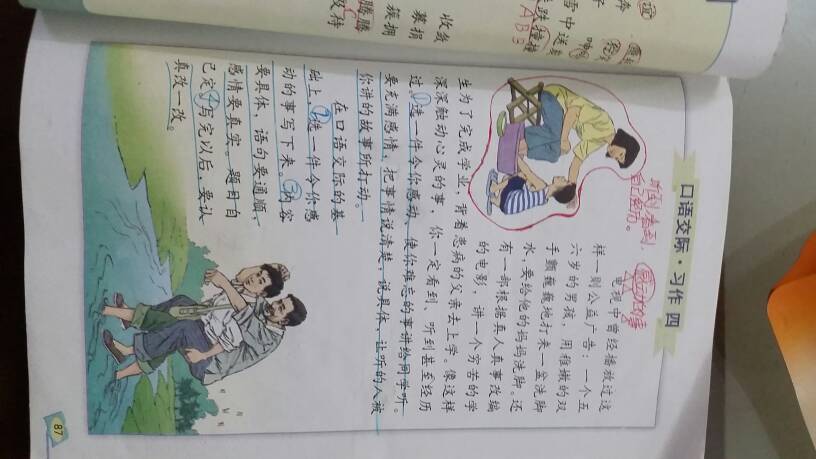 口语交际·习作 四
听到、看到、
自己经历。
感动的事
电视中曾经播放过这
样一则公益广告：一个五
六岁的男孩，用稚嫩的双
手颤巍巍地打来一盆洗脚
水，要给他的妈妈洗脚。还
有一部根据真人真事改编
的电影，讲一个穷苦的学
生为了完成学业，背着患病的父亲去上学。像这样
深深触动心灵的事，你一定看到、听到甚至经历
过。①选一件令你感动、使你难忘的事讲给同学听。
要充满感情，把事情说清楚，说具体，让听的人被
你讲的故事所打动。
在口语交际的基
础上，②选一件令你感
动的事写下来。③内容
要具体，语句要通顺，
感情要真实。题目自
己定。④写完以后，要认
真改一改。
87
谊
雪中送
跌撞撞
ABB
收敛
募捐
簇拥